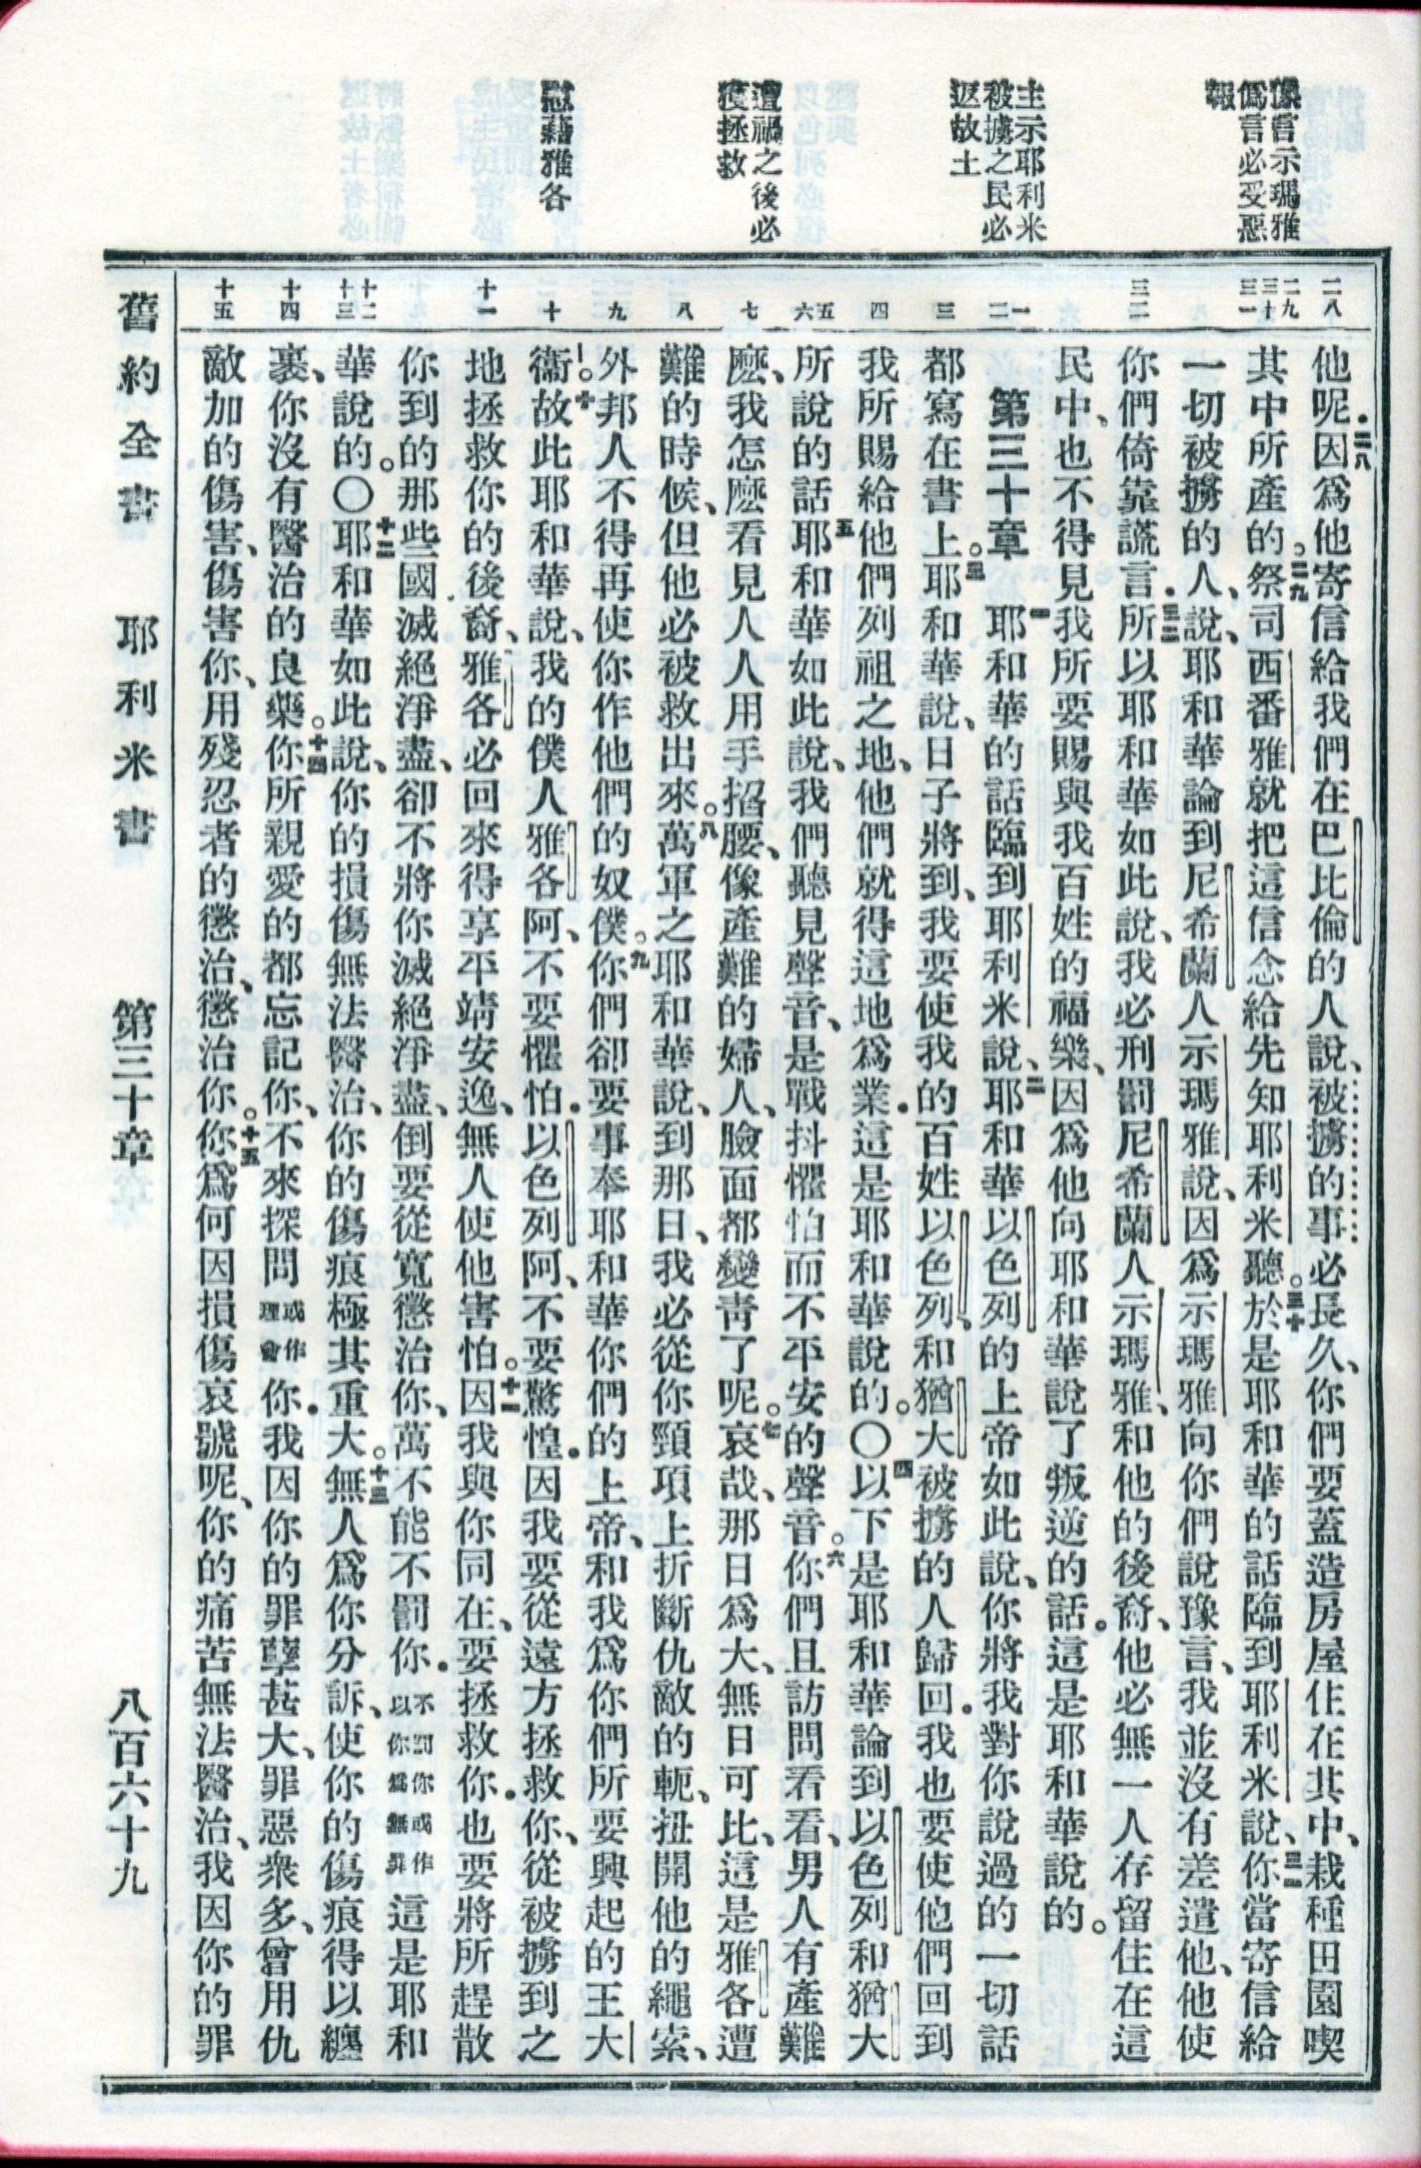 豫言示瑪雅
僞言必受惡
報
主示耶利米
被擄之民必
返故土
遭禍之後必
獲拯救
慰藉雅各
二八
二九
三十
三一
三二
一
二
三
四
五
六
七
八
九
十
十一
十二
十三
十四
十五
他呢因爲他寄信給我們在巴比倫的人說、被擄的事必長久、你們要蓋造房屋住在其中、栽種田園喫
其中所產的。祭司西番雅就把這信念給先知耶利米聽。於是耶和華的話臨到耶利米說、你當寄信給
一切被擄的人、說、耶和華論到尼希蘭人示瑪雅說、因爲示瑪雅向你們說豫言、我並沒有差遣他、他使
你們倚靠謊言.所以耶和華如此說、我必刑罰尼希蘭人示瑪雅、和他的後裔、他必無一人存留住在這
民中、也不得見我所要賜與我百姓的福樂、因爲他向耶和華說了叛逆的話.這是耶和華說的。
第三十章 一耶和華的話臨到耶利米說、二耶和華以色列的上帝如此說、你將我對你說過的一切話
都寫在書上。三耶和華說、日子將到、我要使我的百姓以色列、和猶大被擄的人歸回.我也要使他們回到
我所賜給他們列祖之地、他們就得這地爲業.這是耶和華說的。〇四以下是耶和華論到以色列和猶大
所說的話五耶和華如此說、我們聽見聲音、是戰抖懼怕而不平安的聲音。六你們且訪問看看、男人有產難
麼、我怎麼看見人人用手掐腰、像產難的婦人、臉面都變靑了呢。七哀哉、那日爲大、無日可比、這是雅各遭
難的時候、但他必被救出來。八萬軍之耶和華說、到那日、我必從你頸項上折斷仇敵的軛、扭開他的繩索、
外邦人不得再使你作他們的奴僕。九你們卻要事奉耶和華你們的上帝、和我爲你們所要興起的王大
衞。十故此耶和華說、我的僕人雅各阿、不要懼怕.以色列阿、不要驚惶.因我要從遠方拯救你、從被擄到之
地拯救你的後裔、雅各必回來得享平靖安逸、無人使他害怕。十一因我與你同在、要拯救你.也要將所趕散
你到的那些國滅絕淨盡、卻不將你滅絕淨盡、倒要從寬懲治你、萬不能不罰你.不罰你或作以你爲無罪這是耶和
華說的。〇十二耶和華如此說、你的損傷無法醫治、你的傷痕極其重大。十三無人爲你分訴、使你的傷痕得以纏
裹、你沒有醫治的良藥。十四你所親愛的都忘記你、不來探問或作理會你.我因你的罪孽甚大、罪惡衆多、曾用仇
敵加的傷害、傷害你、用殘忍者的懲治、懲治你。十五你爲何因損傷哀號呢、你的痛苦無法醫治、我因你的罪
舊約全書 耶利米書 第三十章 八百六十九